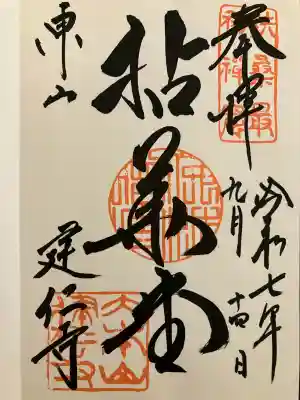 奉拝
令和七年
九月十四日
拈華堂
東山
建仁寺